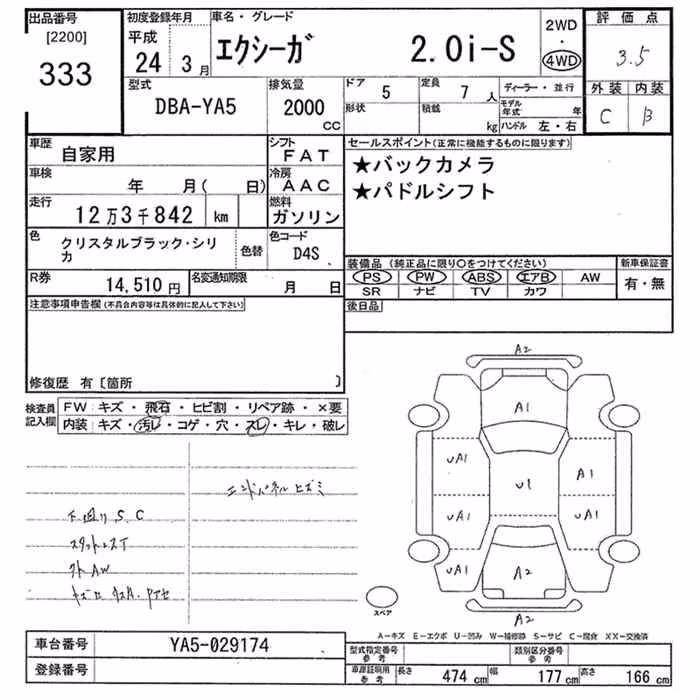 出品番号 初度登録年月 車名・グレード 評価点
[2200] 平成 エクシーガ 2.0i-S 2WD
333 24 3月 ・ 4WD 3.5
外装 内装
C B
型式 排気量 ドア 5 定員 7人 ディーラー・並行
DBA-YA5 2000 CC 形状 積載 kg モデル年式 年
ハンドル 左・右
車歴 自家用 シフト FAT セールスポイント(正常に機能するものに限ります)
車検 年 月( 日) 冷房 AAC ★バックカメラ
走行 12万3千842 km 燃料 ガソリン ★パドルシフト
色 クリスタルブラック・シリカ 色替 色コード D4S
装備品(純正品に限り○をつけてください) 新車保証書
R券 14,510円 名変通知期限 月 日 PS PW ABS エアB AW 有・無
SR ナビ TV カワ
注意事項申告欄(不具合内容等は具体的に記入して下さい) 後日品
修復歴 有〔箇所 〕
検査員記入欄 FW キズ・飛石・ヒビ割・リペア跡・×要
内装 キズ・汚レ・コゲ・穴・スレ・キレ・破レ
A2
A1
UA1 U1 A1
UA1 UA1
UA1 A2
A2
エンドパネル ヒズミ
下廻り S.C
スタットレスT
外AW
スペア
A-キズ E-エクボ U-凹み W-補修跡 S-サビ C-腐食 XX-交換済
車台番号 YA5-029174 型式指定番号 参考 類別区分番号 参考
登録番号 車庫証明用 参考 長さ 474cm 幅 177cm 高さ 166cm